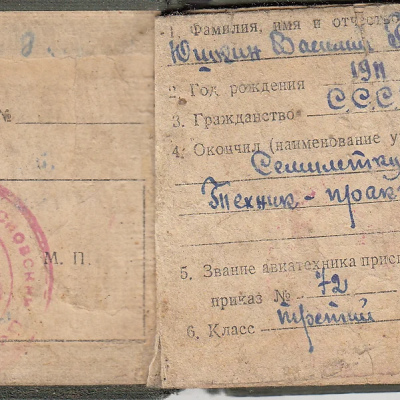 №
М. П.
1. Фамилия, имя и отчест
Юшкин Василий
2. Год рождения 1911
3. Гражданство ССС
4. Окончил (наименование у
Семилетку
Техник-прак
5. Звание авиатехника прис
приказ № 72
6. Класс третий